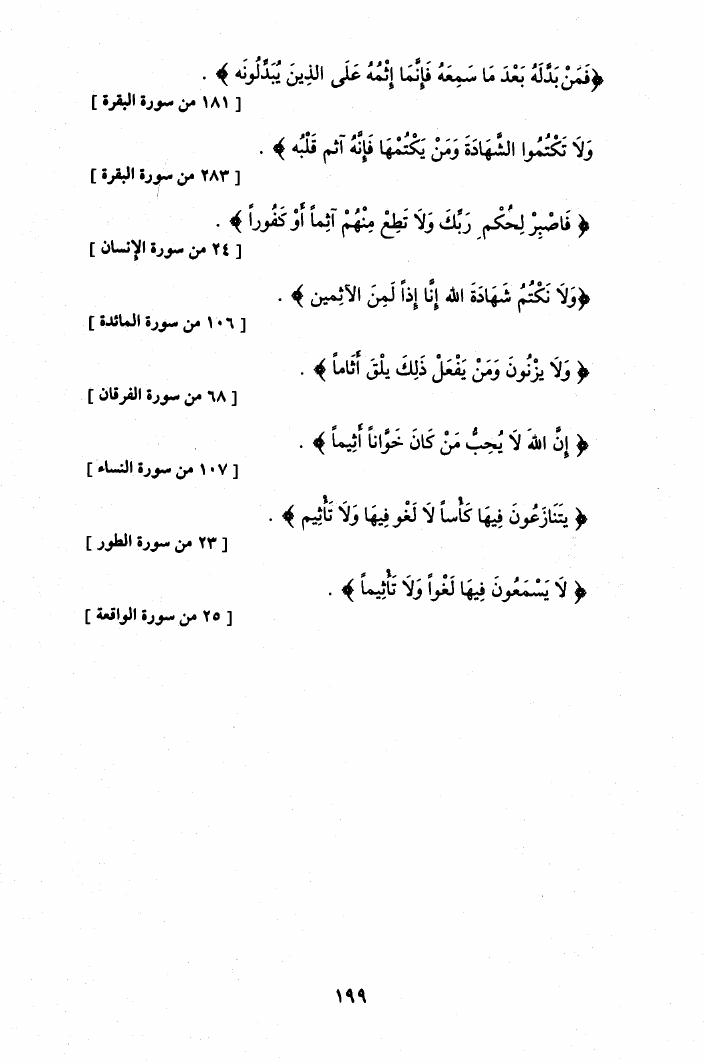 ﴿فَمَنْ بَدَّلَهُ بَعْدَ مَا سَمِعَهُ فَإِنَّمَا إِثْمُهُ عَلَى الذِينَ يُبَدِّلُونَه﴾ .
[ ١٨١ من سورة البقرة ]
وَلاَ تَكْتُمُوا الشَّهَادَةَ وَمَنْ يَكْتُمْهَا فَإِنَّهُ آثم قَلْبُه﴾ .
[ ٢٨٣ من سورة البقرة ]
﴿ فَاصْبِرْ لِحُكْمِ رَبِّكَ وَلاَ تَطِعْ مِنْهُمْ آثِماً أَوْ كَفُوراً﴾ .
[ ٢٤ من سورة الإنسان ]
﴿وَلاَ نَكْتُمُ شَهَادَةَ الله إِنَّا إِذاً لَمِنَ الآثِمين ﴾ .
[ ١٠٦ من سورة المائدة ]
﴿ وَلاَ يزْنُونَ وَمَنْ يَفْعَلْ ذَلِكَ يلْقَ أَثَاماً ﴾ .
[ ٦٨ من سورة الفرقان ]
﴿ إِنَّ اللهَ لاَ يُحِبُّ مَنْ كَانَ خَوَّاناً أَثِيماً ﴾ .
[ ١٠٧ من سورة النساء ]
﴿ يتَنَازَعُونَ فِيهَا كَأْساً لاَ لَغْو فِيهَا وَلاَ تَأْثِيم ﴾ .
[ ٢٣ من سورة الطور ]
﴿ لاَ يَسْمَعُونَ فِيهَا لَغْواً وَلاَ تَأْثِيماً ﴾ .
[ ٢٥ من سورة الواقعة ]
١٩٩